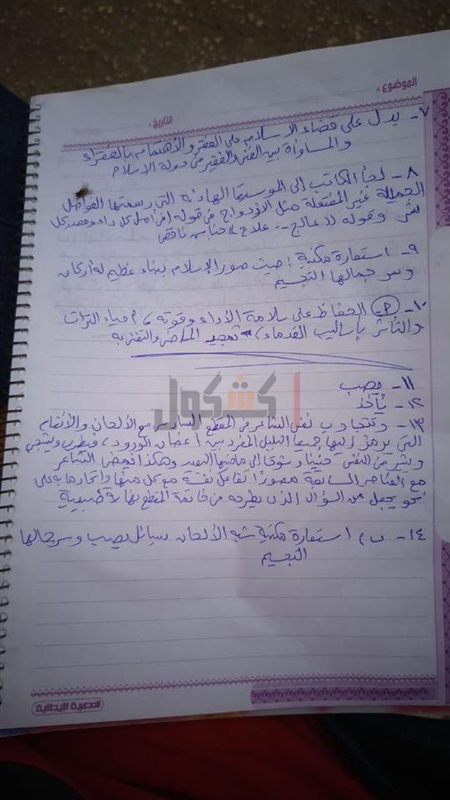 الموضوع :
التاريخ :
٧- يدل على قضاء الإسلام على الفقر والاهتمام بالفقراء
والمساواة بين الغنى والفقير من دولة الإسلام
٨- لجأ الكاتب إلى الموسيقا الهادئة التى رسمتها الفواصل
الجميلة غير المفتعلة مثل الازدواج فى قوله كل داء ومصدر كل
شر وقوله (عالج .. علاج) جناس ناقص
٩- استعارة مكنية ؛ حيث صور الإسلام ببناء عظيم له أركان
وسر جمالها التجسيم
١٠- الحفاظ على سلامة الأداء وقوته، إحياء التراث
والتأثر بأساليب القدماء، تمجيد الماضى والتغنى به
كشكول
١١- مصب
١٢- يأخذ
١٣- وتتجاوب نفس الشاعر فى المقطع السادس مع الألحان والأنغام
التى يرمز إليها جميعا البلبل المغرد بين أغصان الورود، فيطرب وينتشى
حنينا وشوقا إلى ماضيها البعيد وهكذا يمضى الشاعر
مع العناصر السابقة مصورا تفاعل نفسه مع كل منها واتحادها به على
نحو يجعل من السؤال الذى يطرحه فى خاتمة المقطع
١٤- ب) استعارة مكنية شبه الألحان بسائل يصب وسر جمالها
التجسيم